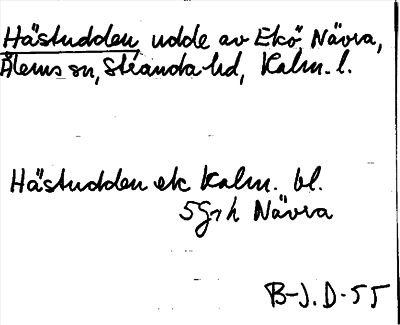 Hästudden, udde av Ekö Nävra,
Ålems sn, Stranda hd, Kalm. l.
Hästudden ek Kalm. bl.
5G7h Nävra
B-J.D-55